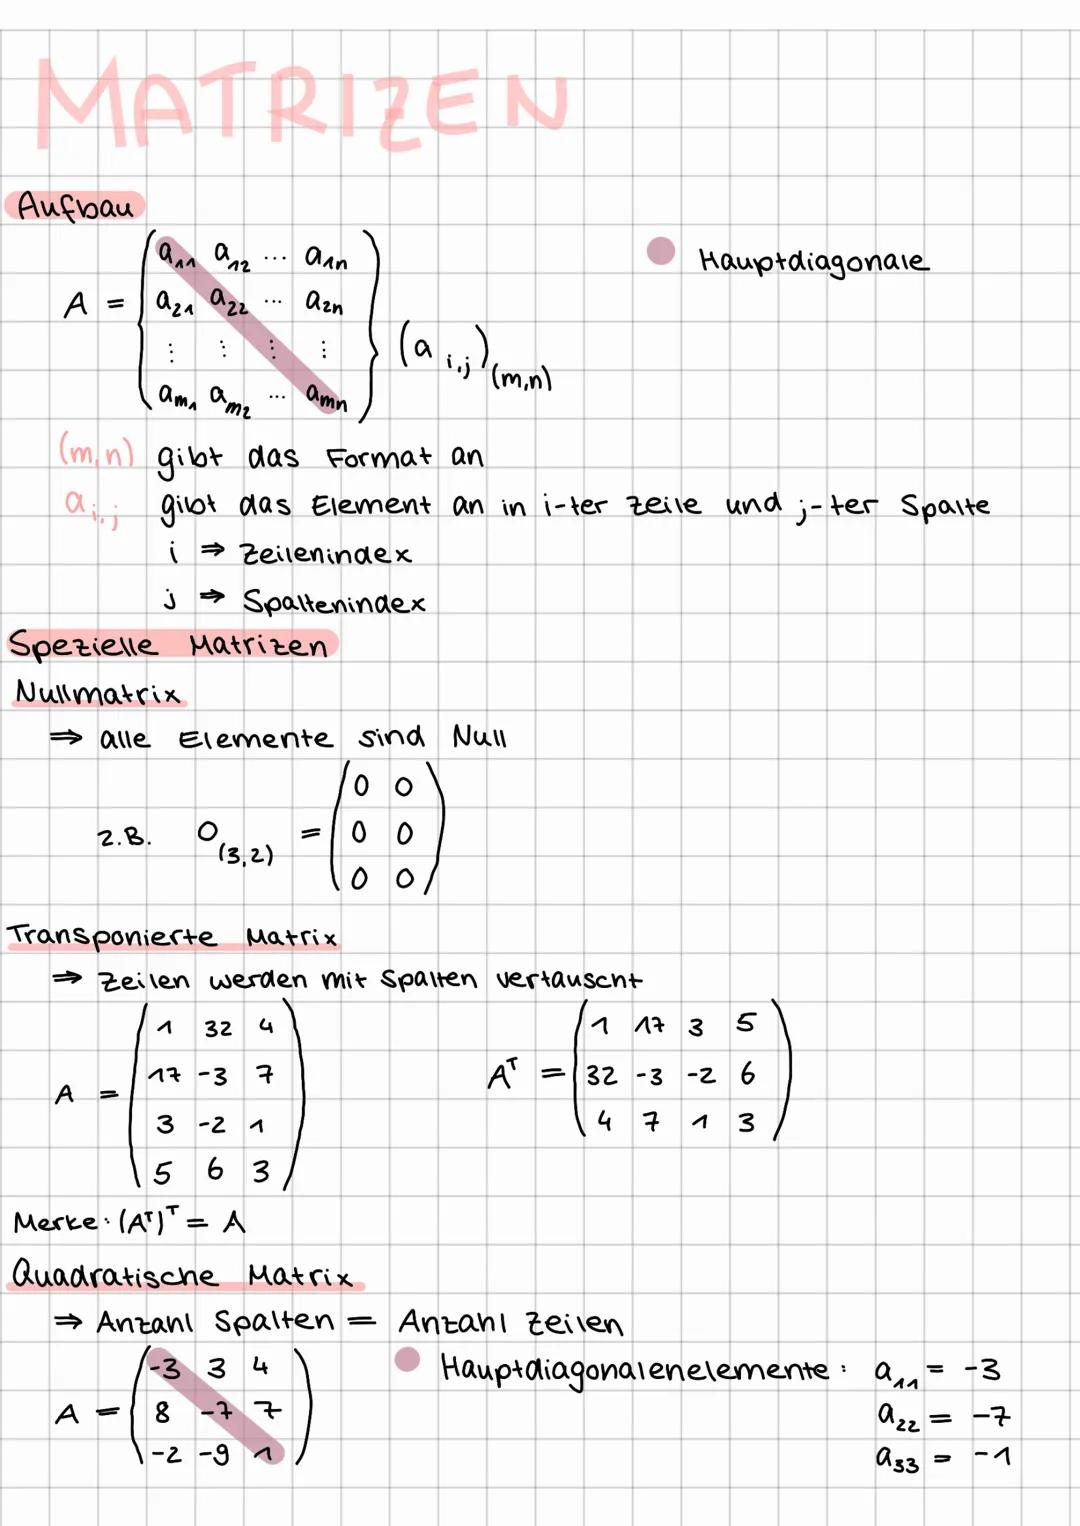 MATRIZEN
Aufbau
A = ( a₁₁ a₁₂ ... a₁ₙ
a₂₁ a₂₂ ... a₂ₙ
⋮ ⋮ ⋮ ⋮
aₘ₁ aₘ₂ ... aₘₙ ) (a i,j)(m,n)
Hauptdiagonale
(m,n) gibt das Format an
a i,j gibt das Element an in i-ter Zeile und j-ter Spalte
i ⇒ Zeilenindex
j ⇒ Spaltenindex
Spezielle Matrizen
Nullmatrix
⇒ alle Elemente sind Null
z.B. O(3,2) = ( 0 0
0 0
0 0 )
Transponierte Matrix
⇒ Zeilen werden mit Spalten vertauscht
A = ( 1 32 4
17 -3 7
3 -2 1
5 6 3 )
Aᵀ = ( 1 17 3 5
32 -3 -2 6
4 7 1 3 )
Merke: (Aᵀ)ᵀ = A
Quadratische Matrix
⇒ Anzahl Spalten = Anzahl Zeilen
A = ( -3 3 4
8 -7 7
-2 -9 1 )
Hauptdiagonalenelemente: a₁₁ = -3
a₂₂ = -7
a₃₃ = -1